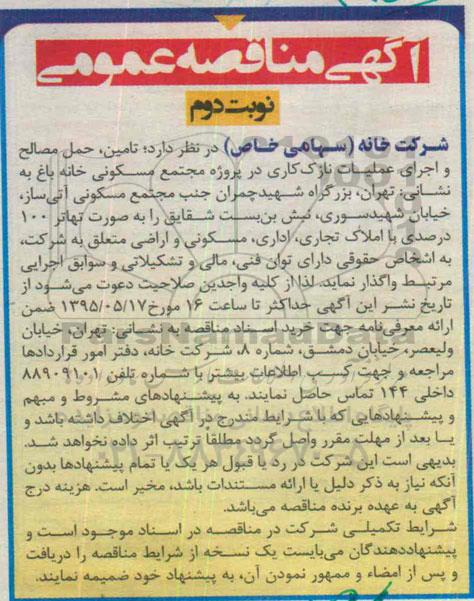 آگهی مناقصه عمومی
نوبت دوم
شرکت خانه (سهامی خاص) در نظر دارد؛ تامین، حمل مصالح
و اجرای عملیات نازک‌کاری در پروژه مجتمع مسکونی خانه باغ به
نشانی: تهران، بزرگراه شهیدچمران جنب مجتمع مسکونی آتی‌ساز،
خیابان شهیدسوری، نبش بن‌بست شقایق را به صورت تهاتر ۱۰۰
درصدی با املاک تجاری، اداری، مسکونی و اراضی متعلق به شرکت،
به اشخاص حقوقی دارای توان فنی، مالی و تشکیلاتی و سوابق اجرایی
مرتبط واگذار نماید. لذا از کلیه واجدین صلاحیت دعوت می‌شود از
تاریخ نشر این آگهی حداکثر تا ساعت ۱۶ مورخ ۱۳۹۵/۰۵/۱۷ ضمن
ارائه معرفی‌نامه جهت خرید اسناد مناقصه به نشانی: تهران، خیابان
ولیعصر، خیابان دمشق، شماره ۸، شرکت خانه، دفتر امور قراردادها
مراجعه و جهت کسب اطلاعات بیشتر با شماره تلفن ۸۸۹۰۹۱۰۱
داخلی ۱۴۴ تماس حاصل نمایند. به پیشنهادهای مشروط و مبهم
و پیشنهادهایی که با شرایط مندرج در آگهی اختلاف داشته باشد و
یا بعد از مهلت مقرر واصل گردد مطلقا ترتیب اثر داده نخواهد شد.
بدیهی است این شرکت در رد یا قبول هر یک یا تمام پیشنهادها بدون
آنکه نیاز به ذکر دلیل یا ارائه مستندات باشد، مخیر است. هزینه درج
آگهی به عهده برنده مناقصه می‌باشد.
شرایط تکمیلی شرکت در مناقصه در اسناد موجود است و
پیشنهاددهندگان می‌بایست یک نسخه از شرایط مناقصه را دریافت
و پس از امضاء و ممهور نمودن آن، به پیشنهاد خود ضمیمه نمایند.
ParsNamadData